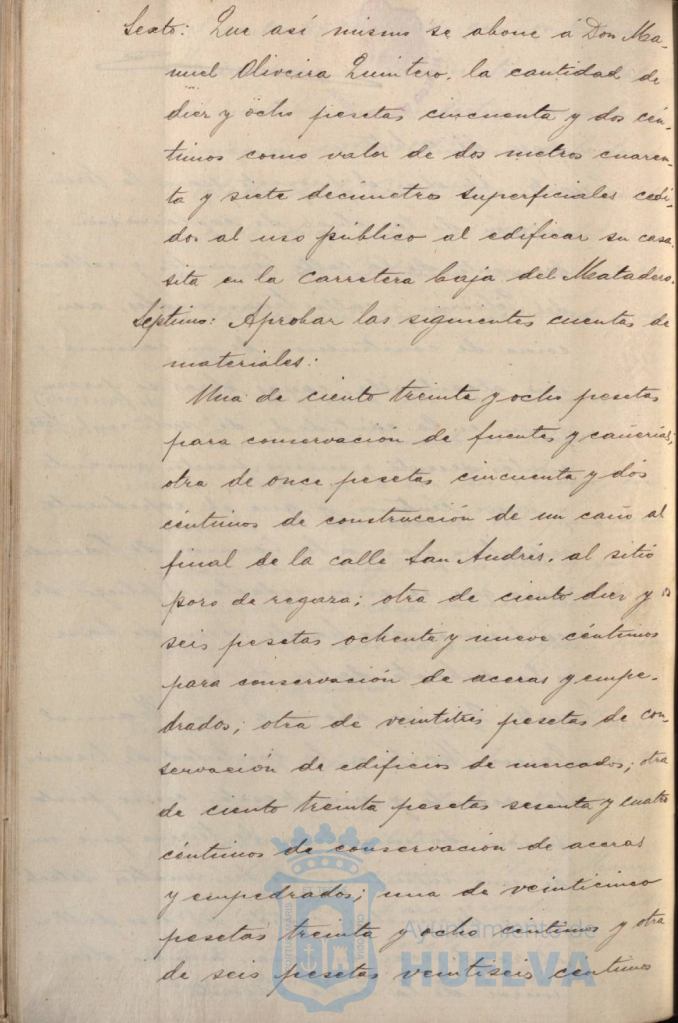 Sexto: Que así mismo se abone á Don Ma-
nuel Oliveira Quintero, la cantidad de
diez y ocho pesetas cincuenta y dos cén-
timos como valor de dos metros cuaren-
ta y siete decimetros superficiales cedi-
dos al uso público al edificar su casa
sita en la Carretera baja del Matadero.
Séptimo: Aprobar las siguientes cuentas de
materiales:
Una de ciento treinta y ocho pesetas
para conservación de fuentes y cañerias;
otra de once pesetas cincuenta y dós
céntimos de construcción de un caño al
final de la calle San Andrés, al sitio
de regaza; otra de ciento diez y
seis pesetas ochenta y nueve céntimos
para conservación de aceras y empe-
drados; otra de veintitrés pesetas de con-
servación de edificios de mercados; otra
de ciento treinta pesetas sesenta y cuatro
céntimos de conservación de aceras
y empedrados; una de veinticinco
pesetas treinta y ocho céntimos y otra
de seis pesetas veintiseis céntimos
Ayuntamiento de
HUELVA